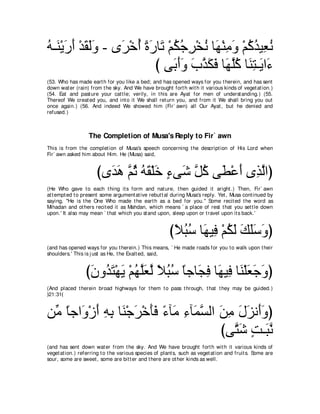 نُعِيدُكُمْ وَمِنْهَا نُخْرِجُكُمْ تَارَةً أُخْرَى - وَلَقَدْ أَرَيْنَـهُ
ءَايَـتِنَا كُلَّهَا فَكَذَّبَ وَأَبَى )
(53. Who has made earth for you like a bed; and has opened ways for you therein, and has sent
down water (rain) from the sky. And We have brought forth with it various kinds of vegetation.)
(54. Eat and pasture your cattle; verily, in this are Ayat for men of understanding.) (55.
Thereof We created you, and into it We shall return you, and from it We shall bring you out
once again.) (56. And indeed We showed him (Fir`awn) all Our Ayat, but he denied and
refused.)
The Completion of Musa's Reply to Fir`awn
This is from the completion of Musa's speech concerning the description of His Lord when
Fir`awn asked him about Him. He (Musa) said,
(الَّذِى أَعْطَى كُلَّ شَىءٍ خَلْقَهُ ثُمَّ هَدَى)
(He Who gave to each thing its form and nature, then guided it aright.) Then, Fir`awn
attempted to present some argumentative rebuttal during Musa's reply. Yet, Musa continued by
saying, "He is the One Who made the earth as a bed for you." Some recited the word as
Mihadan and others recited it as Mahdan, which means `a place of rest that you settle down
upon.' It also may mean `that which you stand upon, sleep upon or travel upon its back.'
(وَسَلَكَ لَكُمْ فِيهَا سُبُلاً)
(and has opened ways for you therein.) This means, `He made roads for you to walk upon their
shoulders.' This is just as He, the Exalted, said,
(وَجَعَلْنَا فِيهَا فِجَاجاً سُبُلاً لَّعَلَّهُمْ يَهْتَدُونَ)
(And placed therein broad highways for them to pass through, that they may be guided.)
)21:31(
(وَأَنزَلَ مِنَ السَّمَآءِ مَآءً فَأَخْرَجْنَا بِهِ أَزْوَاجاً مِّن
نَّبَـتٍ شَتَّى)
(and has sent down water from the sky. And We have brought forth with it various kinds of
vegetation.) referring to the various species of plants, such as vegetation and fruits. Some are
sour, some are sweet, some are bitter and there are other kinds as well.